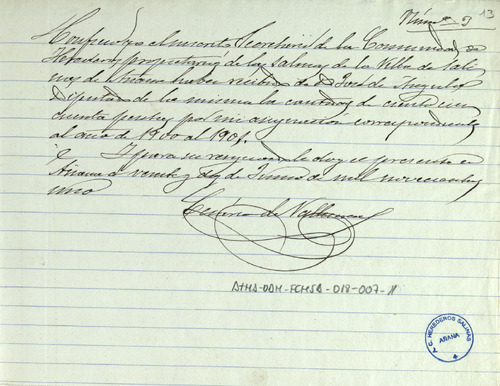 Núm. 9 13
Confieso yo el infrascrito Secretario de la Comunidad de
Herederos propietarios de las Salinas de la Villa de Sali
nas de Añana haber recibido de D. José de
Diputado de la misma la cantidad de ciento cin
cuenta pesetas por mi asignación correspondiente
al año de 1900 al 1901.
Y para su resguardo le doy el presente en
Añana a veinte y dos de Junio de mil novecientos
uno
de
ATHA-DAH-FCHSA-018-007-11
T. C. HEREDEROS SALINAS
AÑANA